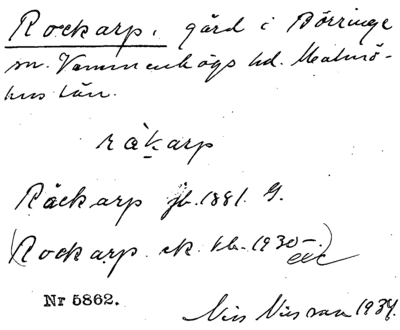 Rockarp, gård i Börringe
sn. Vemmenhögs hd. Malmö-
hus län.
råkarp
Råckarp jb. 1881. G.
(Rockarp ek. kb. 1930-)
Nr 5862.
Nils Nilsson 1934.